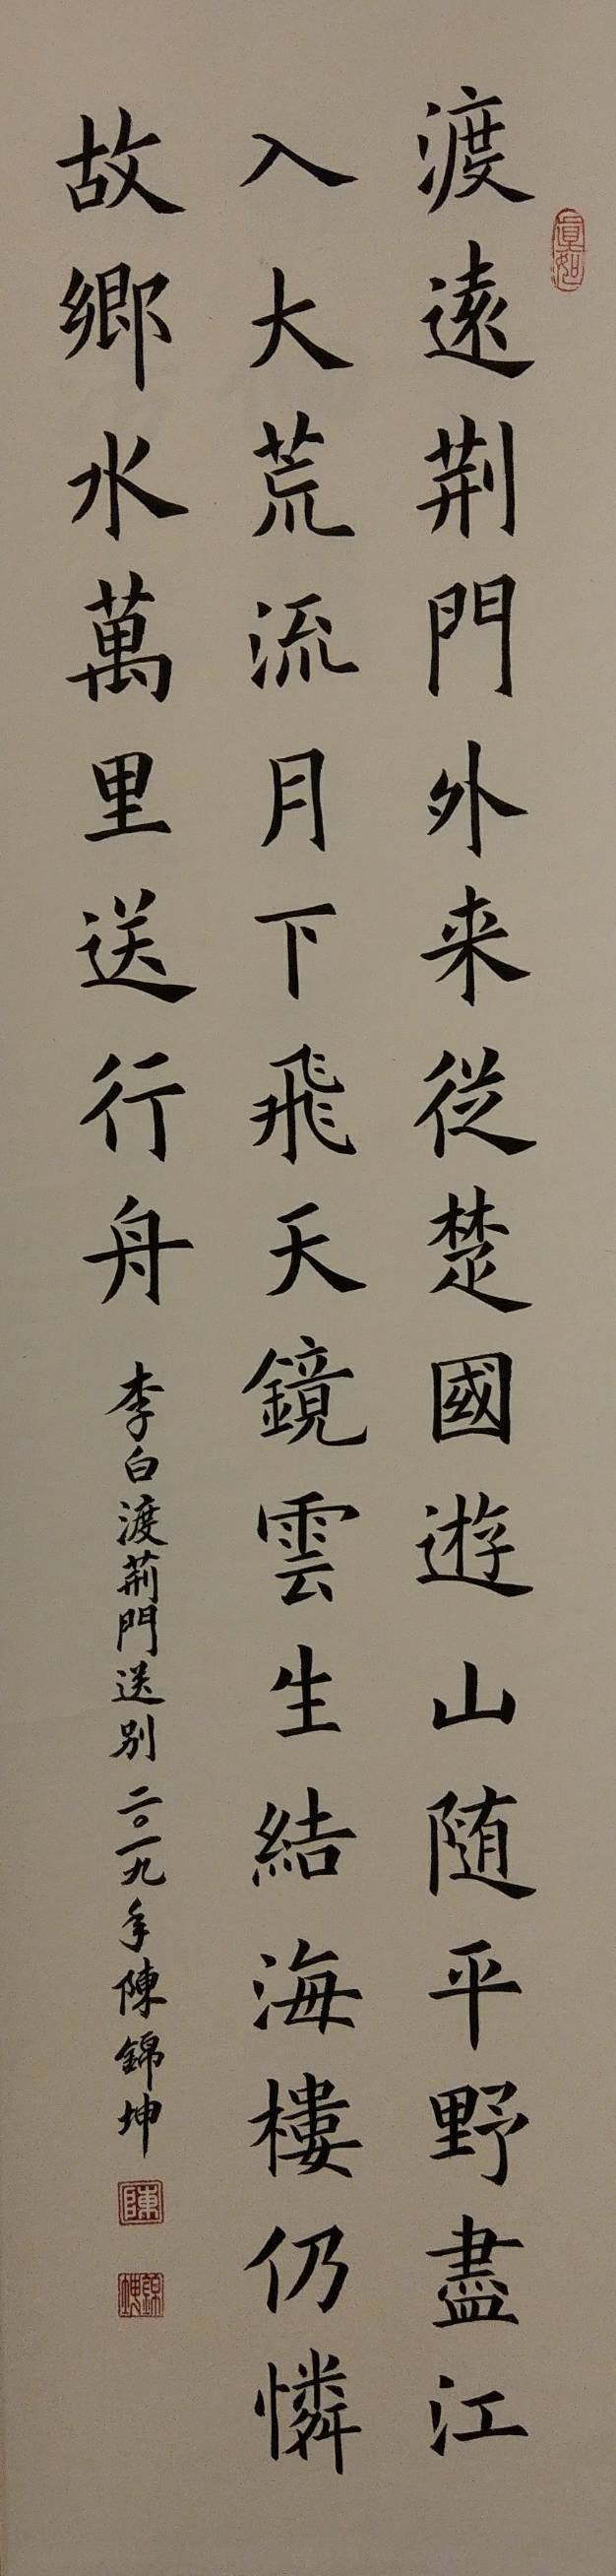 渡遠荆門外来従楚國遊山随平野盡江
入大荒流月下飛天鏡雲生結海樓仍憐
故鄉水萬里送行舟 李白渡荆門送别 二〇一九年陳錦坤
真如
陳
錦坤